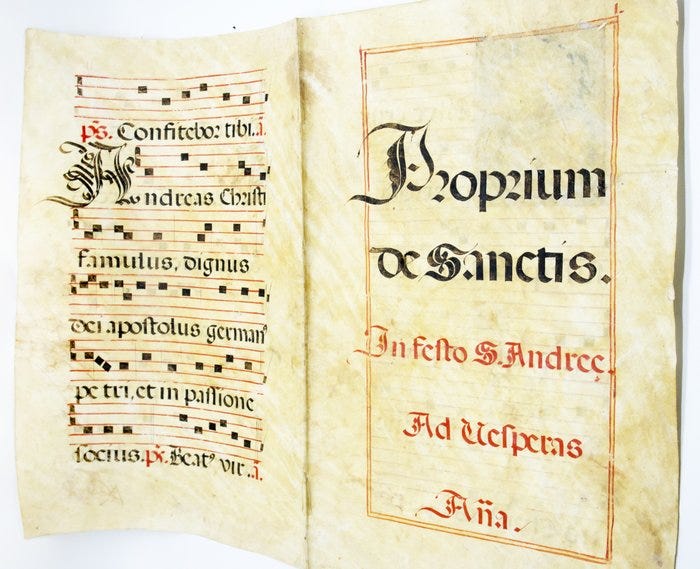 ps. Confitebor tibi. a.
Andreas Christi
famulus, dignus
dei apostolus german⁹
petri, et in passione
socius. ps. Beat⁹ vir. a.
Proprium
de Sanctis.
In festo S. Andreę.
Ad Uesperas
Aña.